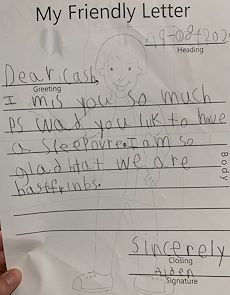 My Friendly Letter
09-08-202
Heading
Dear Cash,
Greeting
I mis you so much
PS wad you lik to have
a sleepovre. I am so
glad htat we are
bastfrinbs.
Body
Sincerely
Closing
Aiden
Signature